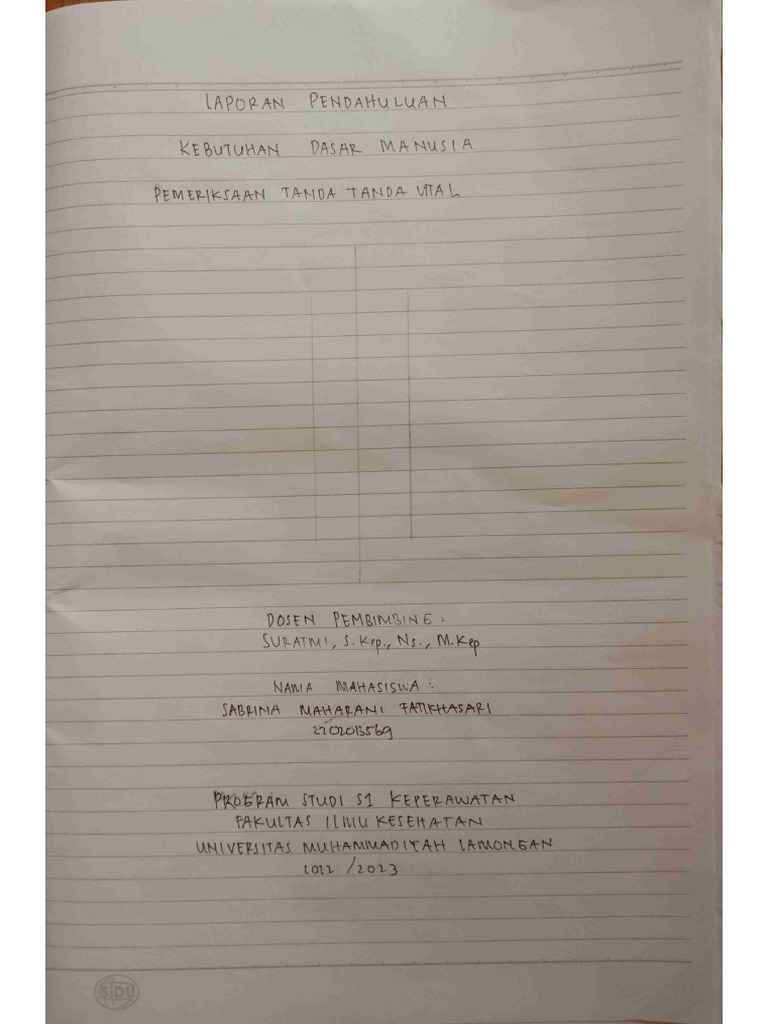 LAPORAN PENDAHULUAN
KEBUTUHAN DASAR MANUSIA
PEMERIKSAAN TANDA TANDA VITAL
DOSEN PEMBIMBING :
SURATMI, S.Kep., Ns., M.Kep
NAMA MAHASISWA :
SABRINA MAHARANI FATIKHASARI
2202013569
PROGRAM STUDI S1 KEPERAWATAN
FAKULTAS ILMU KESEHATAN
UNIVERSITAS MUHAMMADIYAH LAMONGAN
2022 /2023
SIDU